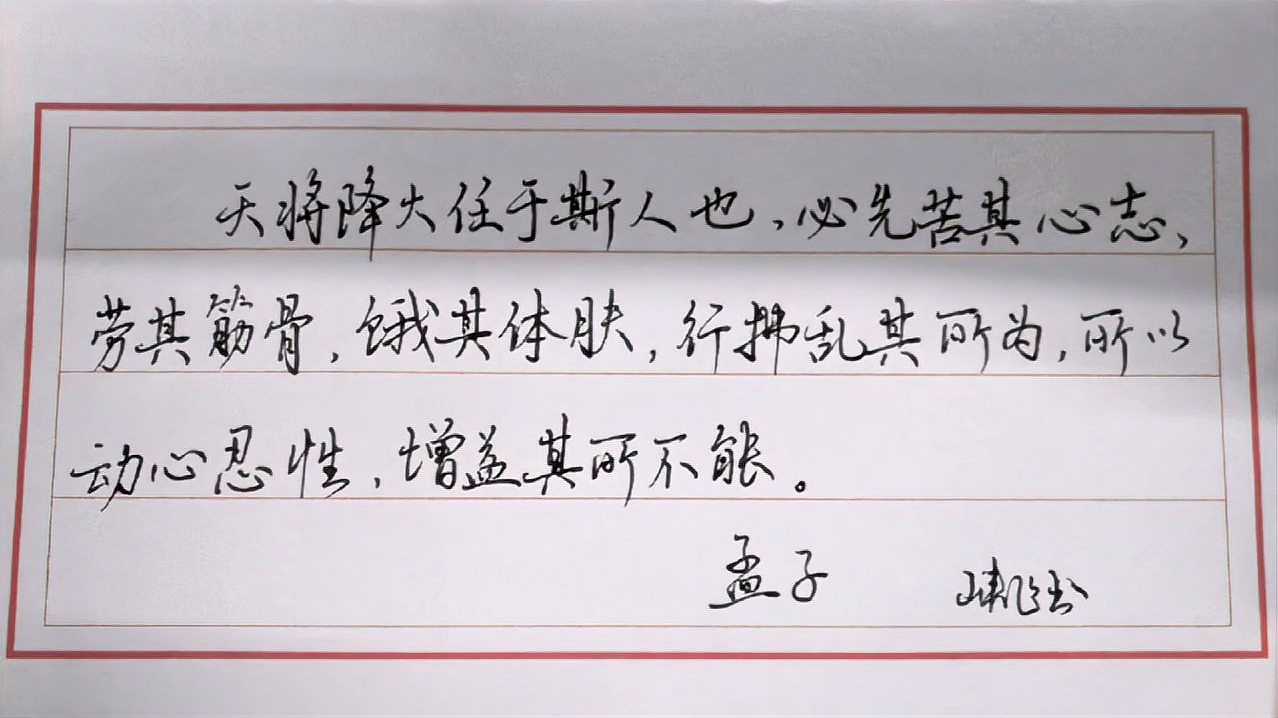 天将降大任于斯人也,必先苦其心志、
劳其筋骨,饿其体肤,行拂乱其所为,所以
动心忍性,增益其所不能。
孟子